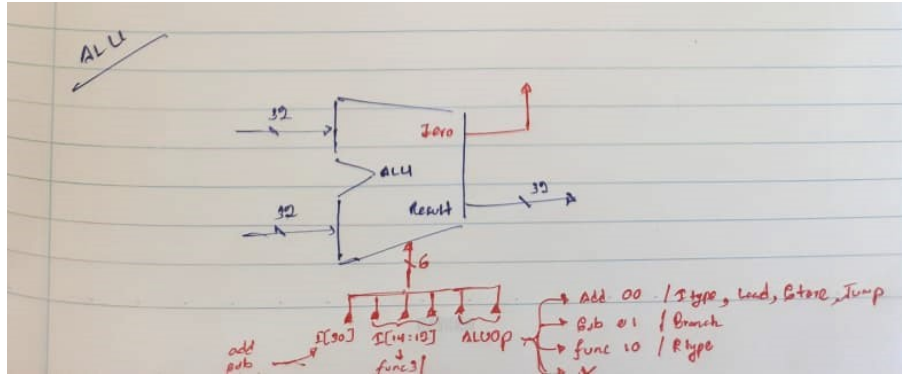 ALU
32
Zero
ALU
32
Result
32
6
I[30]
I[14:12]
ALUOP
add
sub
func3/
Add 00 / Itype, Load, Store, Jump
Sub 01 / Branch
func 10 / Rtype